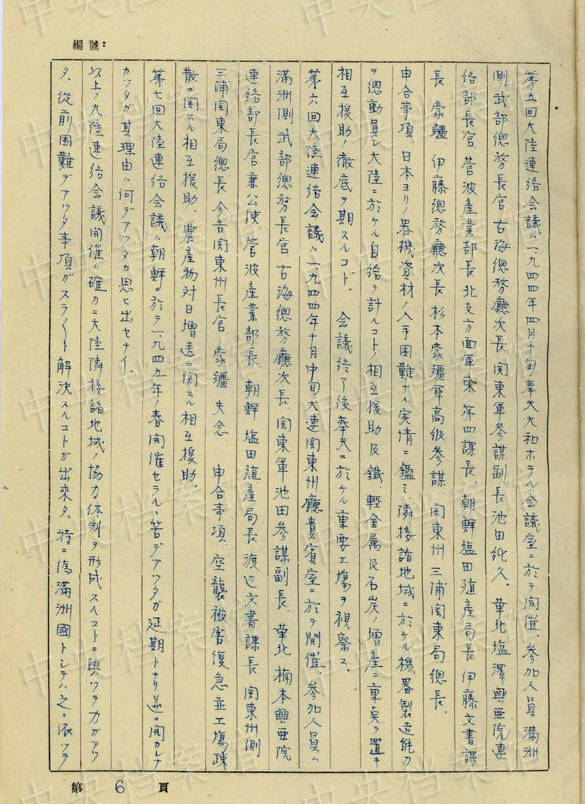 編號：
第五回大陸連絡会議ハ一九四四年四月下旬奉天大和ホテル会議室ニ於テ開催、参加人員満洲
側武部總務長官古海總務廳次長、関東軍参謀副長池田純久、華北塩澤興亜院連
絡部長官、菅波産業部長、北支方面軍東第四課長、朝鮮塩田殖産局長伊藤文書課
長、蒙疆伊藤總務廳次長、杉本蒙疆軍高級参謀、関東州三浦関東局總長、
申合事項、日本ヨリノ器機資材ノ入手困難ナル実情ニ鑑ミ隣接諸地域ニ於ケル機器製造能力
ヲ總動員シ大陸ニ於ケル自給ヲ計ルコト、相互援助及鉄、軽金属及石炭ノ増産ニ重点ヲ置キ
相互援助ノ徹底ヲ期スルコト、会議終了後奉天ニ於ケル重要工場ヲ視察ス、
第六回大陸連絡会議ハ一九四四年十月中旬大連関東州廳貴賓室ニ於テ開催、参加人員ハ
満洲側武部總務長官古海總務廳次長、関東軍池田参謀副長、華北楠本興亜院
連絡部長官兼公使、菅波産業部長、朝鮮塩田殖産局長渡辺文書課長、関東州側
三浦関東局總長、今吉関東州長官、蒙疆失念、申合事項、空襲被害復急並工場疎
散ニ関スル相互援助、農産物対日増送ニ関スル相互援助、
第七回大陸連絡会議ハ朝鮮ニ於テ一九四五年ノ春開催セラルル筈デアツタガ延期トナリ遂ニ開カレナ
カツタガ其理由ハ何デアツタカ思ヒ出セナイ、
以上ノ大陸連絡会議開催ハ確カニ大陸隣接諸地域ノ協力体制ヲ形成スルコトニ與ツテ力ガアツ
タ、従前困難デアツタ事項ガスラスラト解決スルコトガ出来タ、特ニ偽満洲國トシテハ之ニ依ツテ
第 6 頁